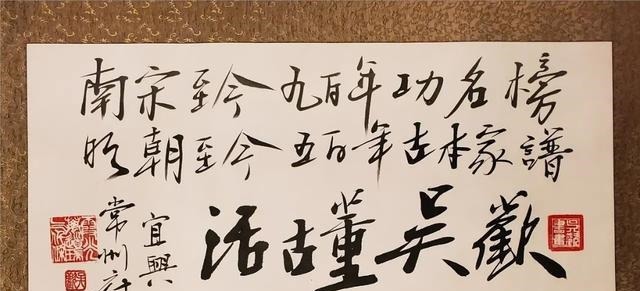 南宋至今九百年功名榜
明朝至今五百年古本家譜
活古董吴歡
宜興
常州府